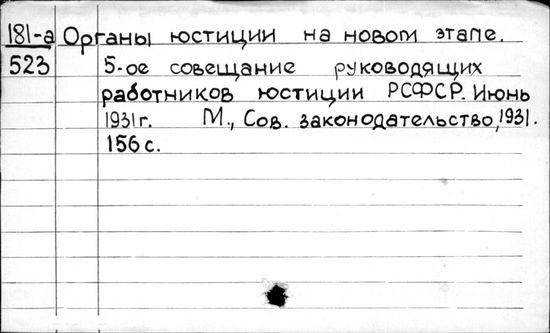 181-а Органы юстиции на новом этапе.
523 5-ое совещание руководящих
работников юстиции РСФСР. Июнь
1931г. М., Сов. законодательство, 1931.
156 с.